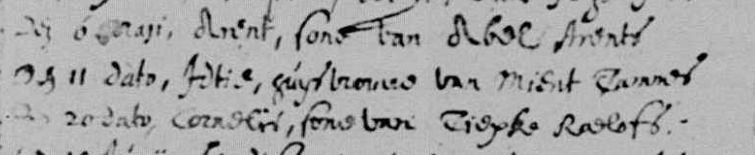 Den 6 Maji, Arent, sone van Abel Arents
Den 11 dato, Idtie, huysvrouwe van Mient Tammes
Den 20 dato, Cornelis, sone van Tiepke Roelofs.